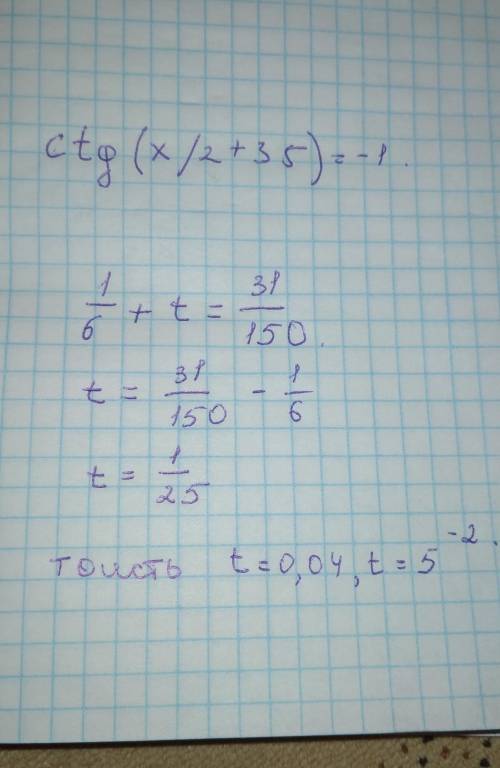 ctg (x/2+35) = -1.
1/6 + t = 31/150.
t = 31/150 - 1/6
t = 1/25
тоисть t = 0,04, t = 5^-2.